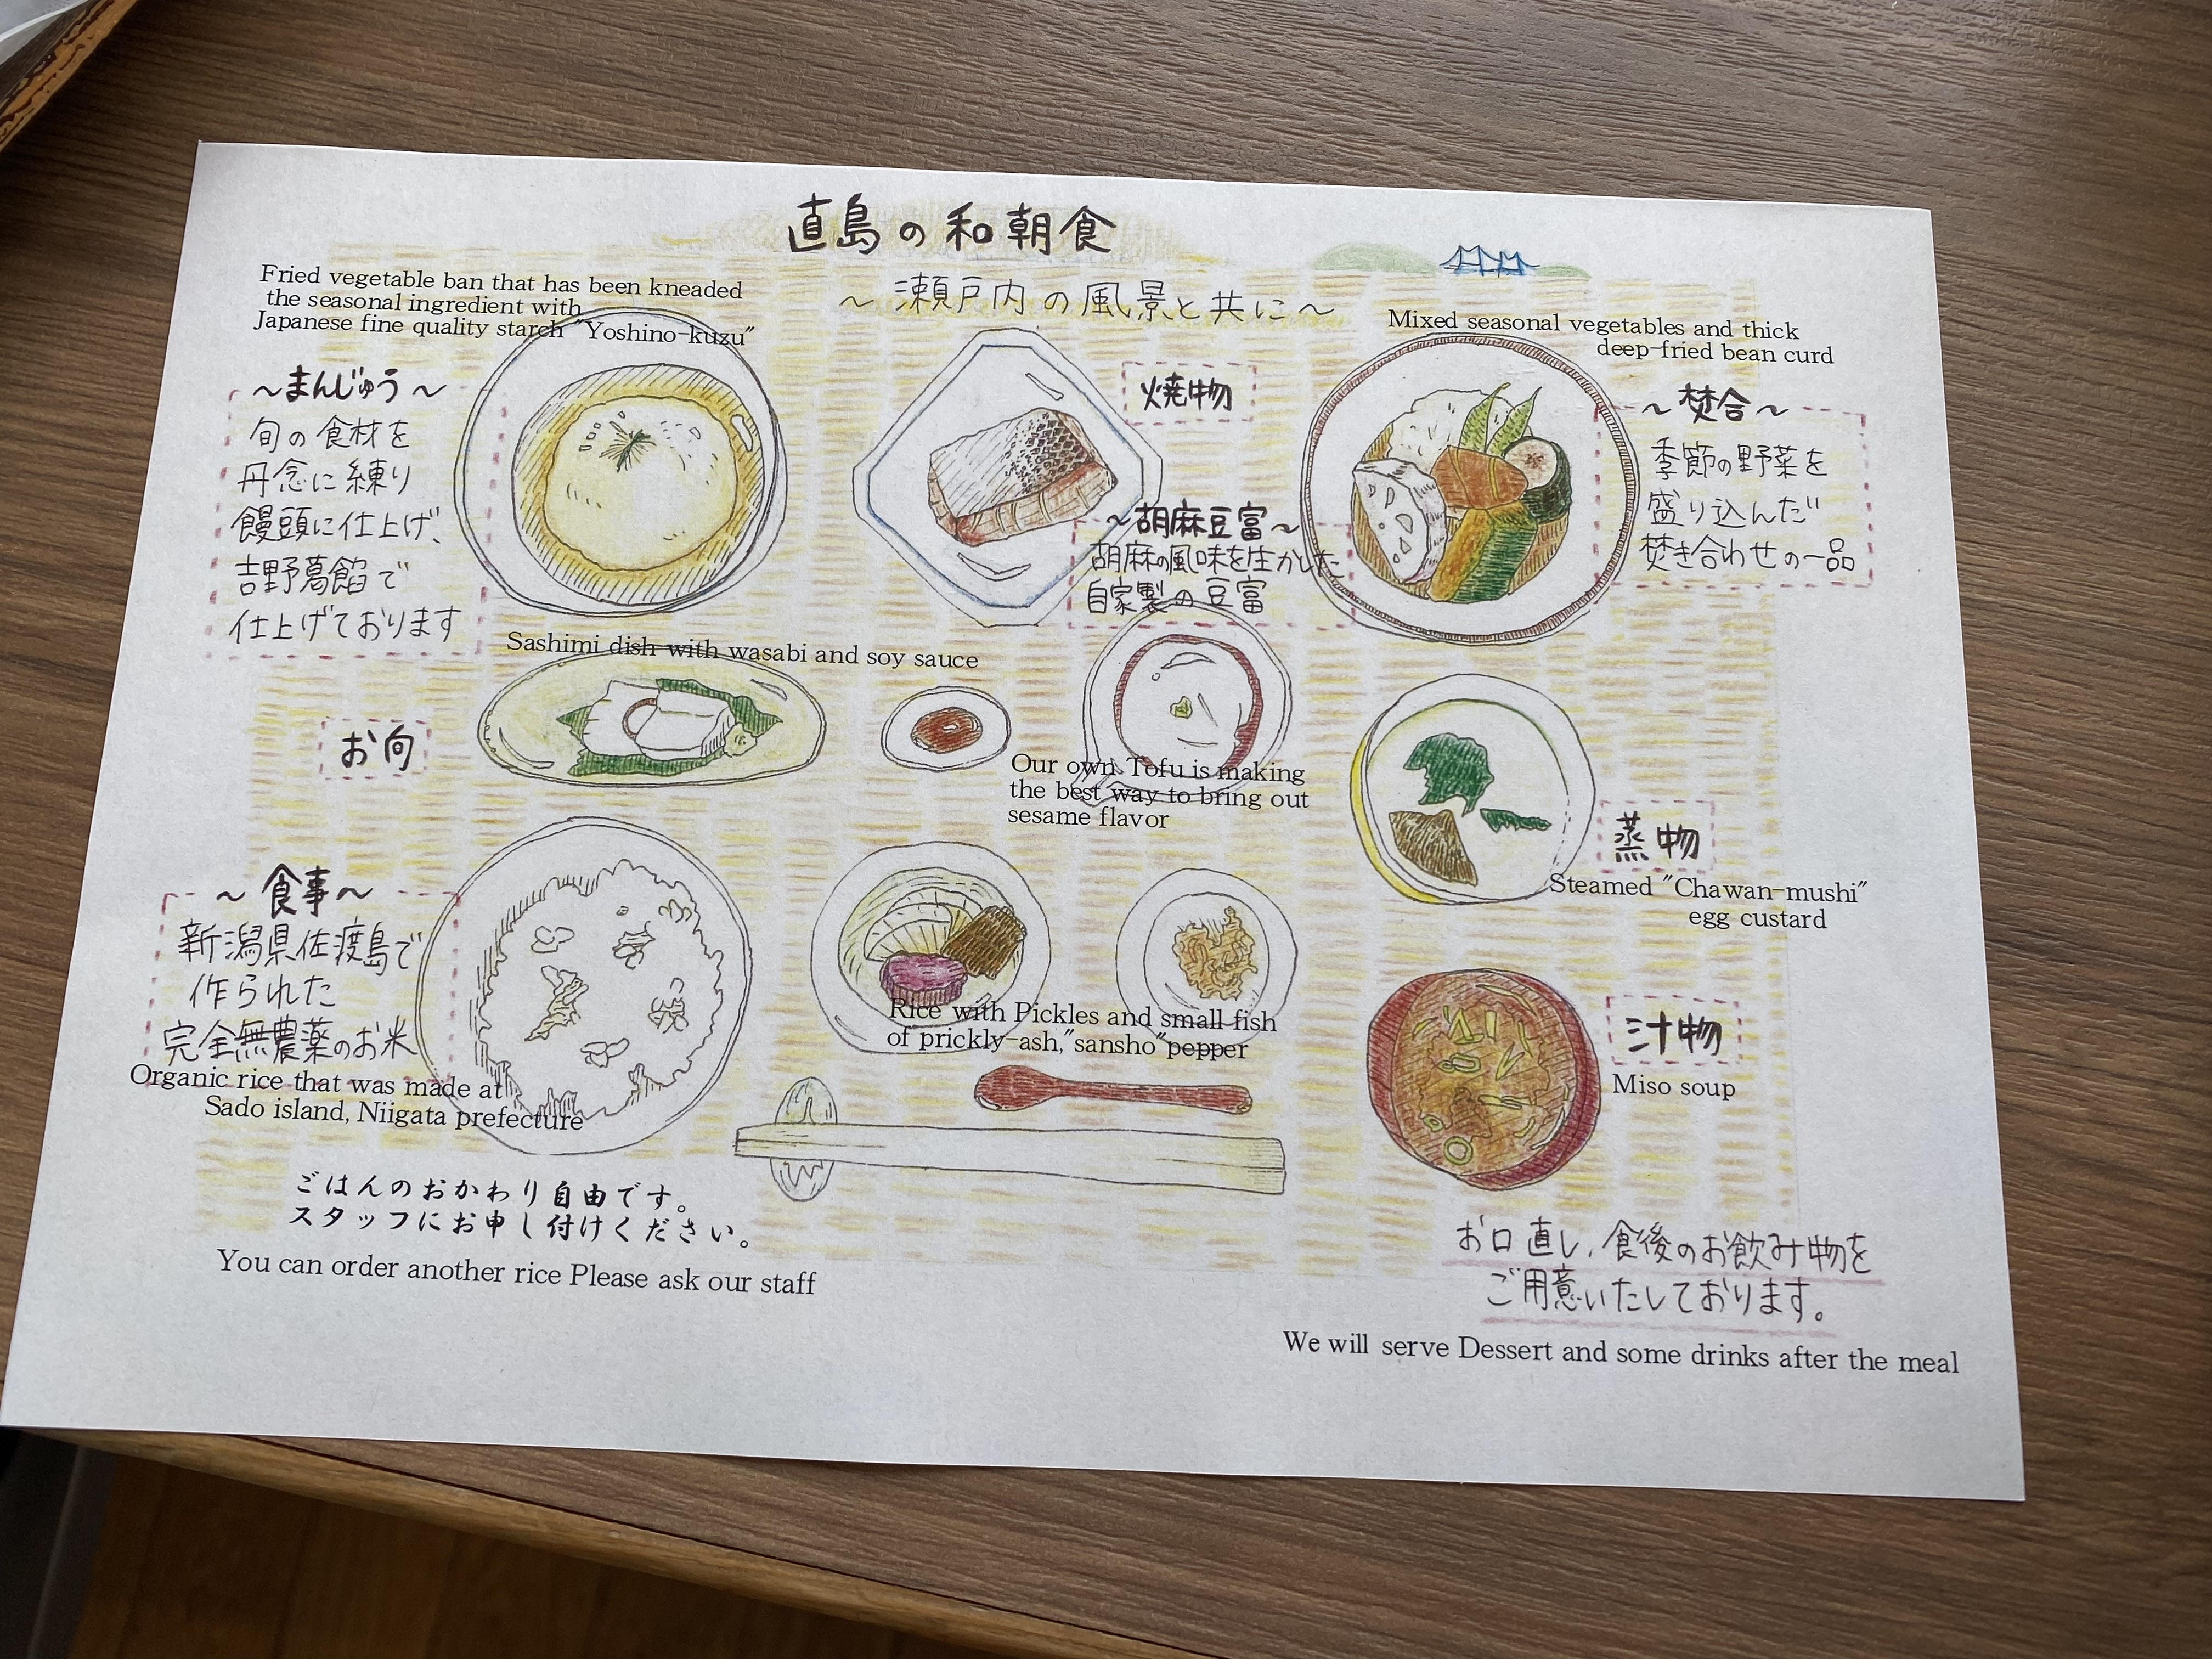 直島の和朝食
～瀬戸内の風景と共に～
Fried vegetable ban that has been kneaded
the seasonal ingredient with
Japanese fine quality starch "Yoshino-kuzu"
～まんじゅう～
旬の食材を
丹念に練り
饅頭に仕上げ、
吉野葛餡で
仕上げております
焼物
Mixed seasonal vegetables and thick
deep-fried bean curd
～焚合～
季節の野菜を
盛り込んだ
焚き合わせの一品
～胡麻豆富～
胡麻の風味を生かした
自家製の豆富
Sashimi dish with wasabi and soy sauce
お向
Our own Tofu is making
the best way to bring out
sesame flavor
蒸物
Steamed "Chawan-mushi"
egg custard
～食事～
新潟県佐渡島で
作られた
完全無農薬のお米
Organic rice that was made at
Sado island, Niigata prefecture
Rice with Pickles and small fish
of prickly-ash,"sansho"pepper
汁物
Miso soup
ごはんのおかわり自由です。
スタッフにお申し付けください。
You can order another rice Please ask our staff
お口直し、食後のお飲み物を
ご用意いたしております。
We will serve Dessert and some drinks after the meal